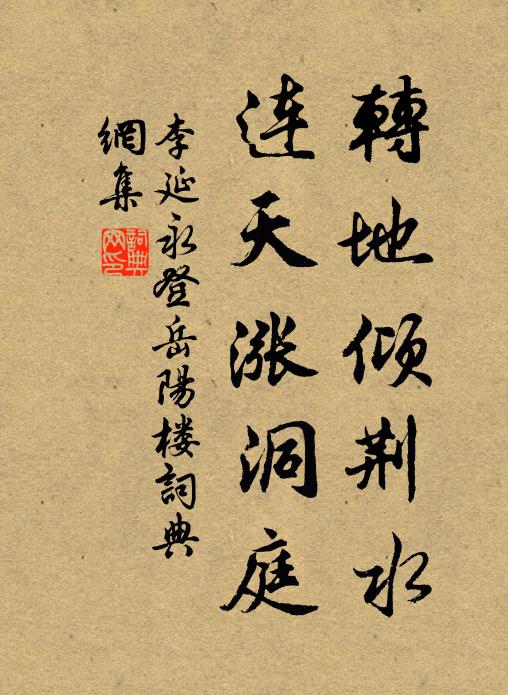 轉地傾荆水
连天漲洞庭
李延永登岳陽楼詞典
網集
詞典網印